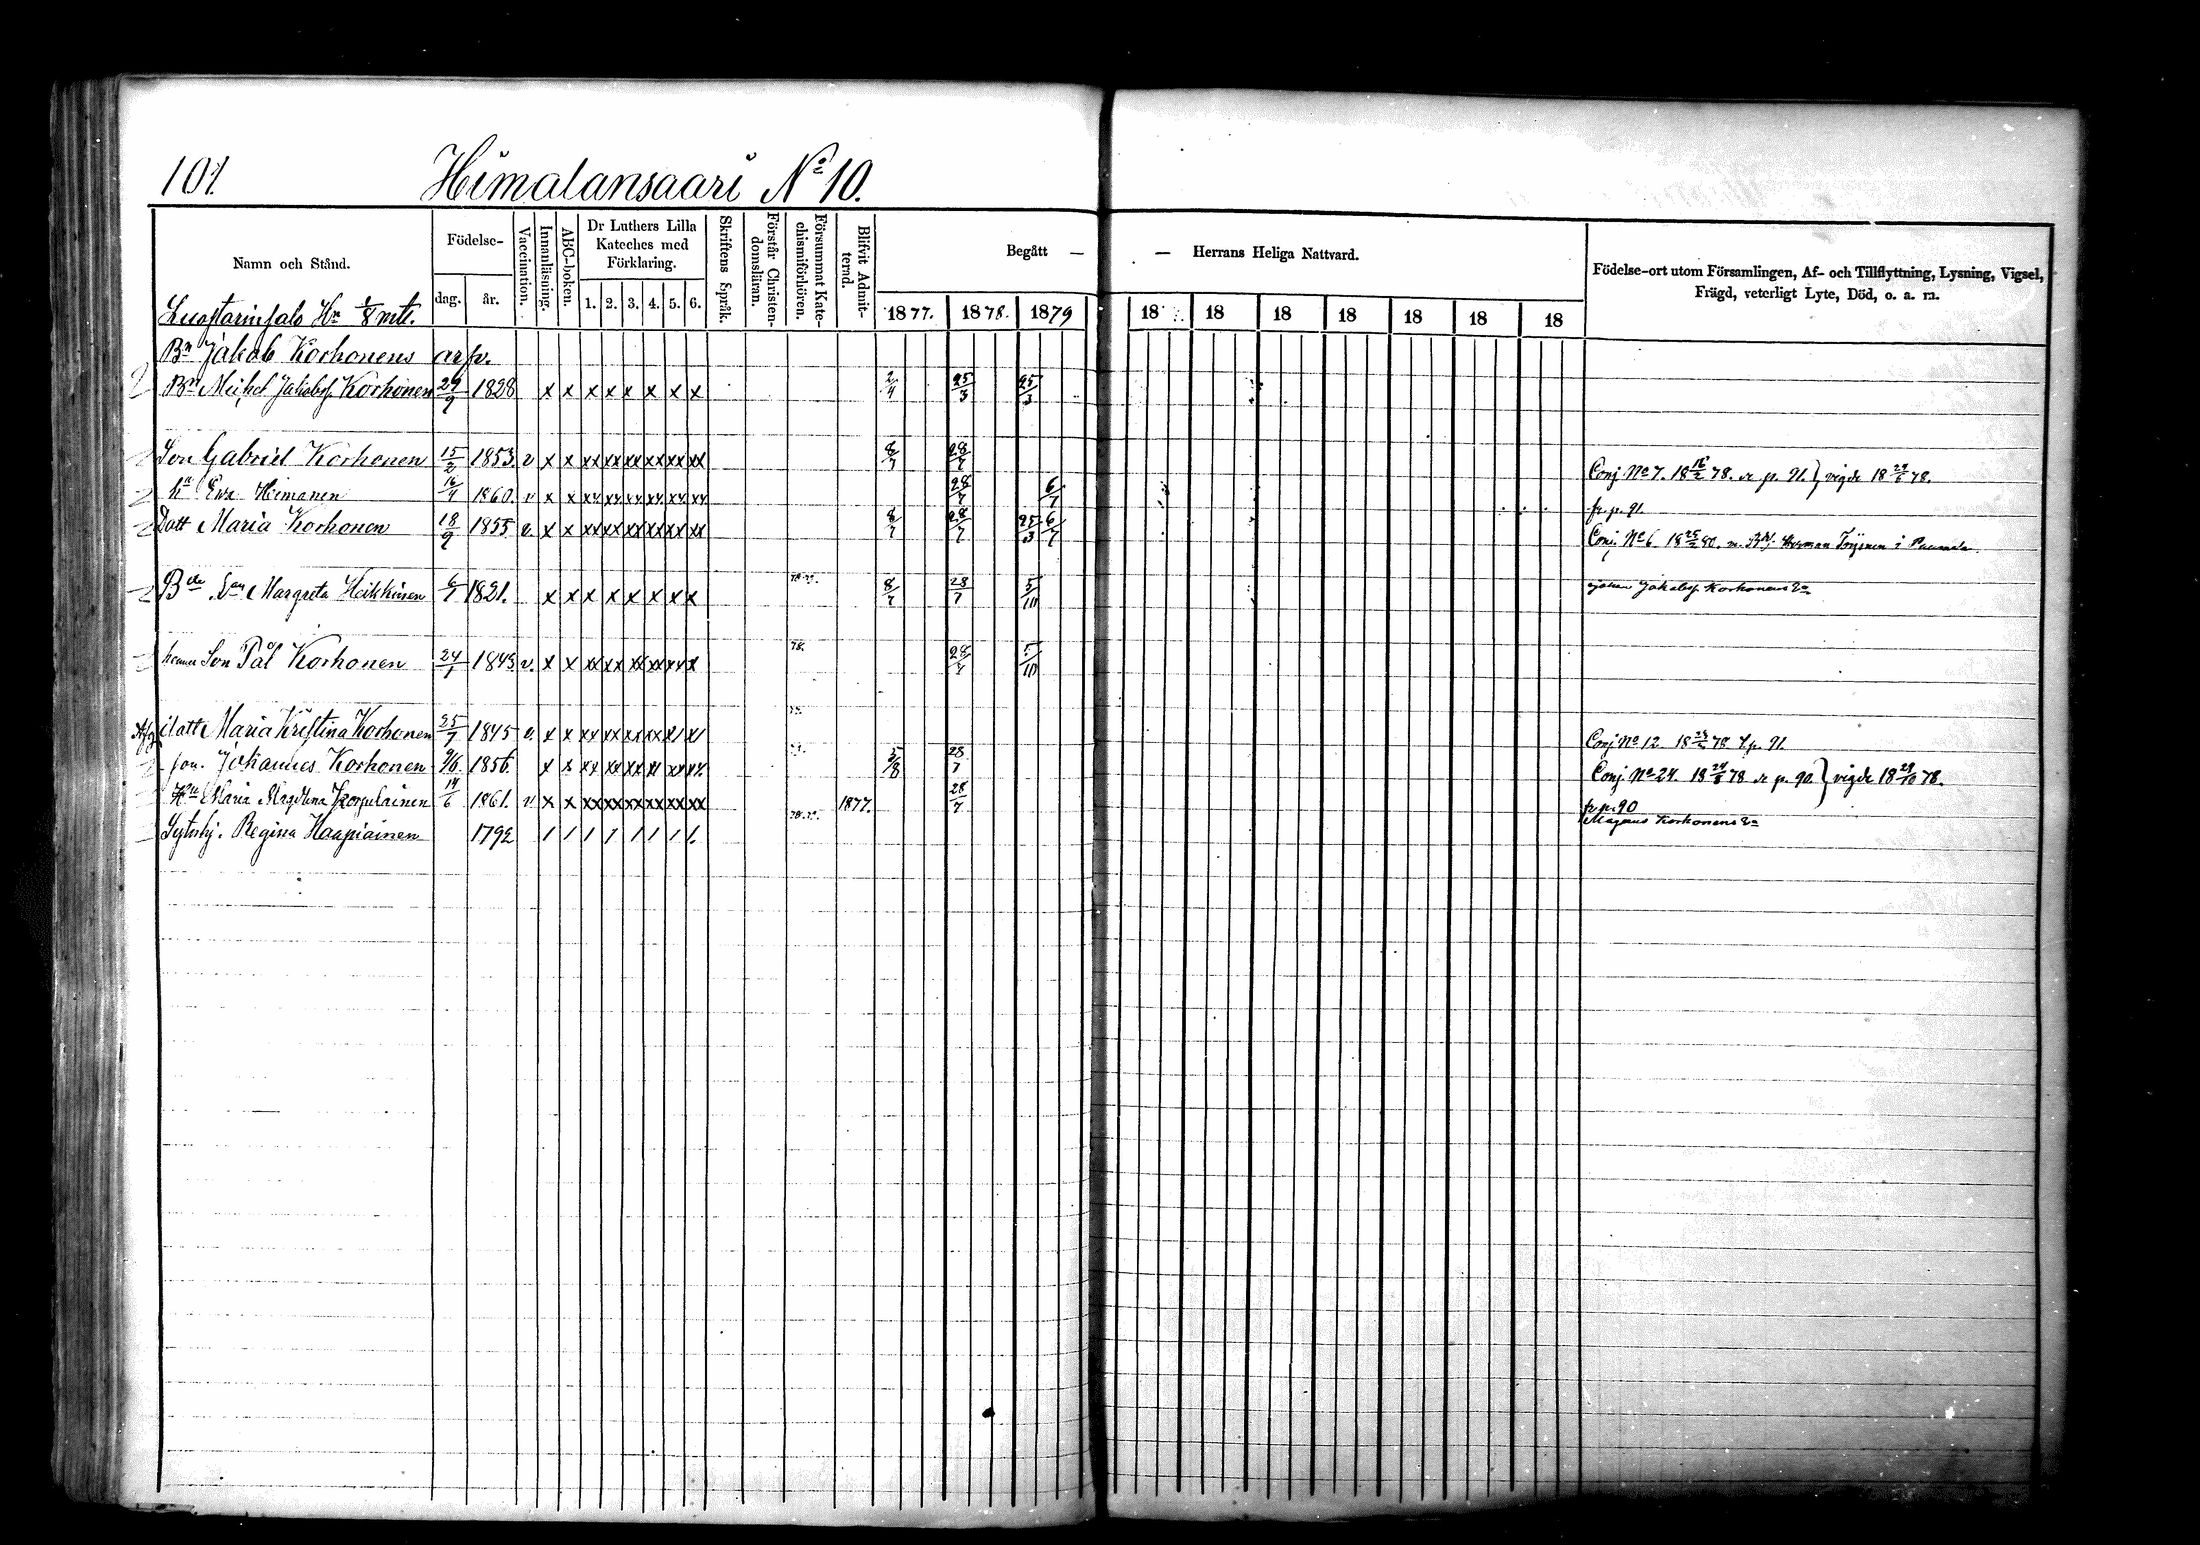 101. Himalansaari No 10.
Namn och Stånd.
Födelse-
dag. år.
Vaccination.
Innanläsning.
ABC-boken.
Dr Luthers Lilla
Kateches med
Förklaring.
1. 2. 3. 4. 5. 6.
Skriftens Språk.
Förstår Christen-
domsläran.
Försummat Kate-
chismiförhören.
Blifvit Admit-
terad.
Begått — — Herrans Heliga Nattvard.
1877. 1878. 1879 18 18 18 18 18 18 18
Födelse-ort utom Församlingen, Af- och Tillflyttning, Lysning, Vigsel,
Frägd, veterligt Lyte, Död, o. a. m.
Hn 1/8 mtl.
Bn Jakob Korhonens arfv.
Bn Mickel Jakobsf. Korhonen 29/9 1828 x x x x x x x x 2/4 25/3 25/3
Son Gabriel Korhonen 15/2 1853 v x x xx xx xx xx xx xx 8/7 28/7 Conj No 7. 18 16/2 78. p. 91. } vigde 18 78.
hu Eva Himanen 16/4 1860. v x x xx xx xx xx xx xx 28/7 6/7 fr. p. 91.
Dott Maria Korhonen 18/9 1855 v. x x xx xx xx xx xx xx 8/7 28/7 25/3 6/7 Conj. No 6. 18 80. m. Herman i
Bde Enn Margreta Heikkinen 6/7 1821. x x x x x x x x 8/7 28/7 5/10 Johan Jakobsf. Korhonens Ea
hennes Son Pål Korhonen 24/1 1843 v. x x xx xx xx xx xx x 78. 28/7 5/10
Afg. dott Maria Kristina Korhonen 25/7 1845 v. x x xx xx xx xx x/ x/ Conj No 12 18 78 p. 91
son. Johannes Korhonen 9/6. 1856. x x xx xx xx x/ xx xx. 5/8 28/7 Conj. No 24. 18 24/8 78 p. 90 } vigde 18 29/10 78.
Hu Maria Magdlena Korpelainen 14/6 1861. v x x xx xx xx xx xx xx 1877. 28/7 fr. p. 90
Sytnhj. Regina Haapiainen 1792 / / / / / / / /. Magnus Korhonens Ea